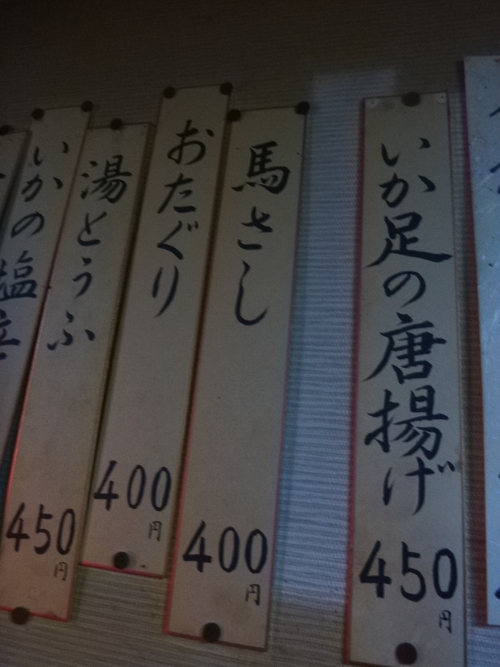 いか足の唐揚げ
450円
馬さし
400円
おたぐり
400円
湯とうふ
450円
いかの塩辛